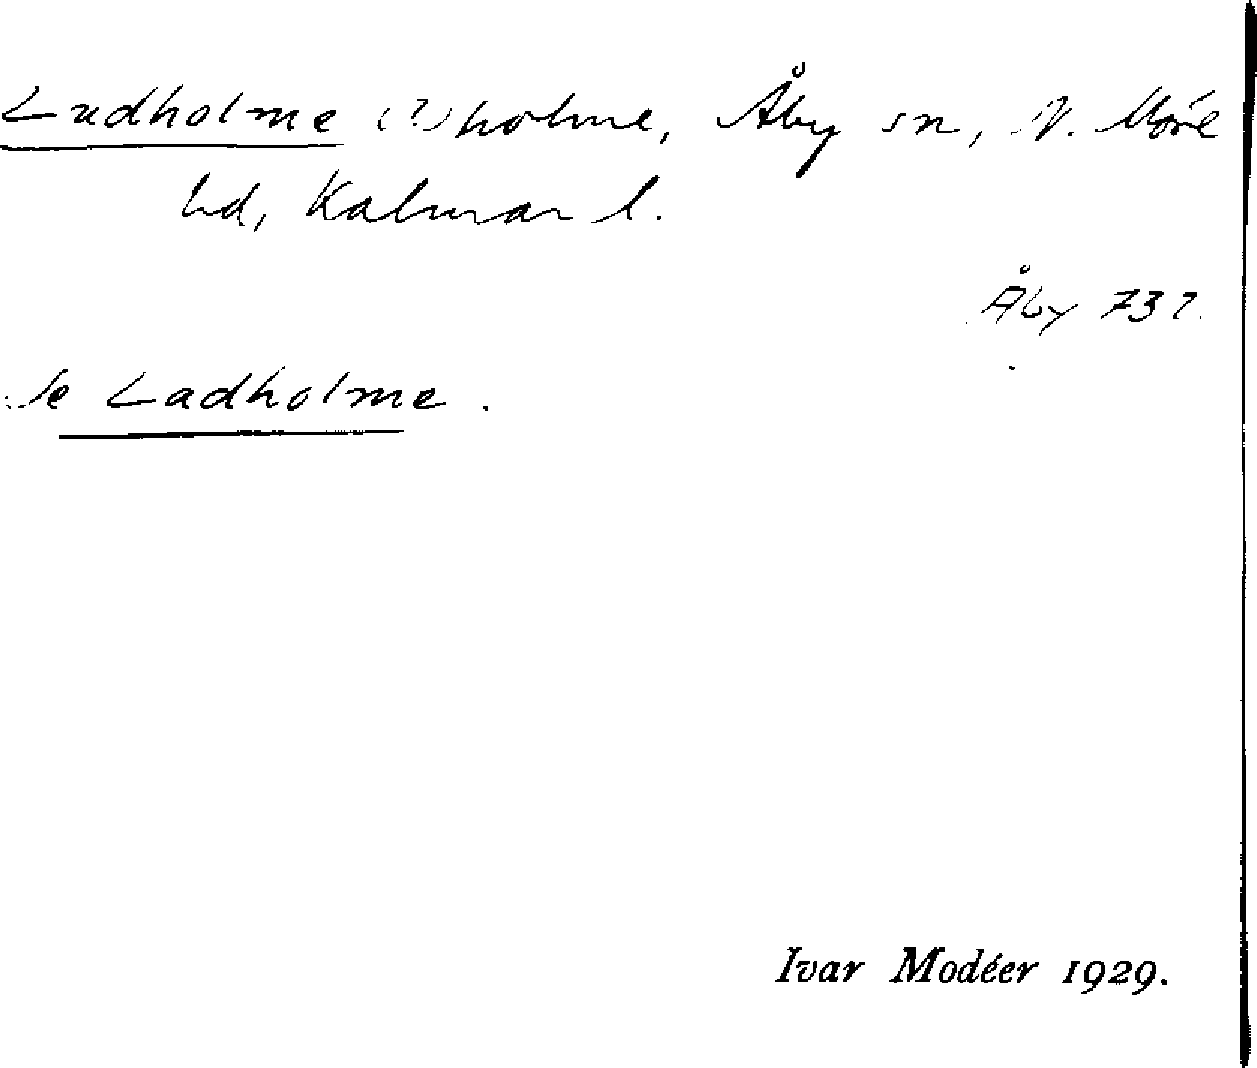 Ludholme (?) holme, Åby sn, N. Möre
hd, Kalmar l.
Åby 737.
Se Ladholme.
Ivar Modéer 1929.